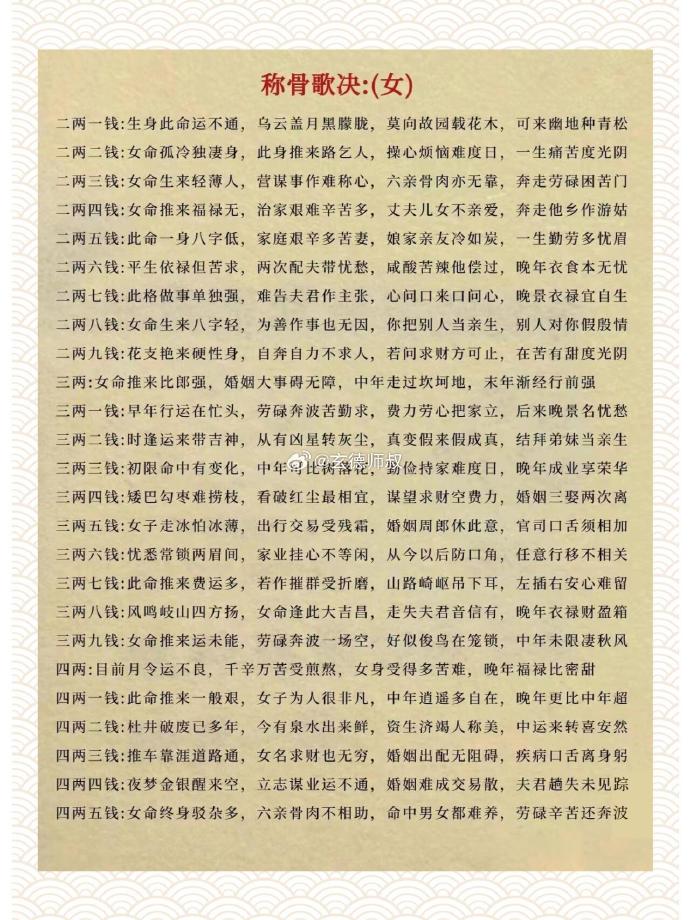 称骨歌决:(女)
二两一钱:生身此命运不通，乌云盖月黑朦胧，莫向故园载花木，可来幽地种青松
二两二钱:女命孤冷独凄身，此身推来路乞人，操心烦恼难度日，一生痛苦度光阴
二两三钱:女命生来轻薄人，营谋事作难称心，六亲骨肉亦无靠，奔走劳碌困苦门
二两四钱:女命推来福禄无，治家艰难辛苦多，丈夫儿女不亲爱，奔走他乡作游姑
二两五钱:此命一身八字低，家庭艰辛多苦妻，娘家亲友冷如炭，一生勤劳多忧眉
二两六钱:平生依禄但苦求，两次配夫带忧愁，咸酸苦辣他偿过，晚年衣食本无忧
二两七钱:此格做事单独强，难告夫君作主张，心问口来口问心，晚景衣禄宜自生
二两八钱:女命生来八字轻，为善作事也无因，你把别人当亲生，别人对你假殷情
二两九钱:花支艳来硬性身，自奔自力不求人，若问求财方可止，在苦有甜度光阴
三两:女命推来比郎强，婚姻大事碍无障，中年走过坎坷地，末年渐经行前强
三两一钱:早年行运在忙头，劳碌奔波苦勤求，费力劳心把家立，后来晚景名忧愁
三两二钱:时逢运来带吉神，从有凶星转灰尘，真变假来假成真，结拜弟妹当亲生
三两三钱:初限命中有变化，中年可比树落花，勤俭持家难度日，晚年成业享荣华
@玄德师叔
三两四钱:矮巴勾枣难捞枝，看破红尘最相宜，谋望求财空费力，婚姻三娶两次离
三两五钱:女子走冰怕冰薄，出行交易受残霜，婚姻周郎休此意，官司口舌须相加
三两六钱:忧悉常锁两眉间，家业挂心不等闲，从今以后防口角，任意行移不相关
三两七钱:此命推来费运多，若作摧群受折磨，山路崎岖吊下耳，左插右安心难留
三两八钱:风鸣岐山四方扬，女命逢此大吉昌，走失夫君音信有，晚年衣禄财盈箱
三两九钱:女命推来运未能，劳碌奔波一场空，好似俊鸟在笼锁，中年未限凄秋风
四两:目前月令运不良，千辛万苦受煎熬，女身受得多苦难，晚年福禄比密甜
四两一钱:此命推来一般艰，女子为人很非凡，中年逍遥多自在，晚年更比中年超
四两二钱:杜井破废已多年，今有泉水出来鲜，资生济竭人称美，中运来转喜安然
四两三钱:推车靠涯道路通，女名求财也无穷，婚姻出配无阻碍，疾病口舌离身躬
四两四钱:夜梦金银醒来空，立志谋业运不通，婚姻难成交易散，夫君趟失未见踪
四两五钱:女命终身驳杂多，六亲骨肉不相助，命中男女都难养，劳碌辛苦还奔波